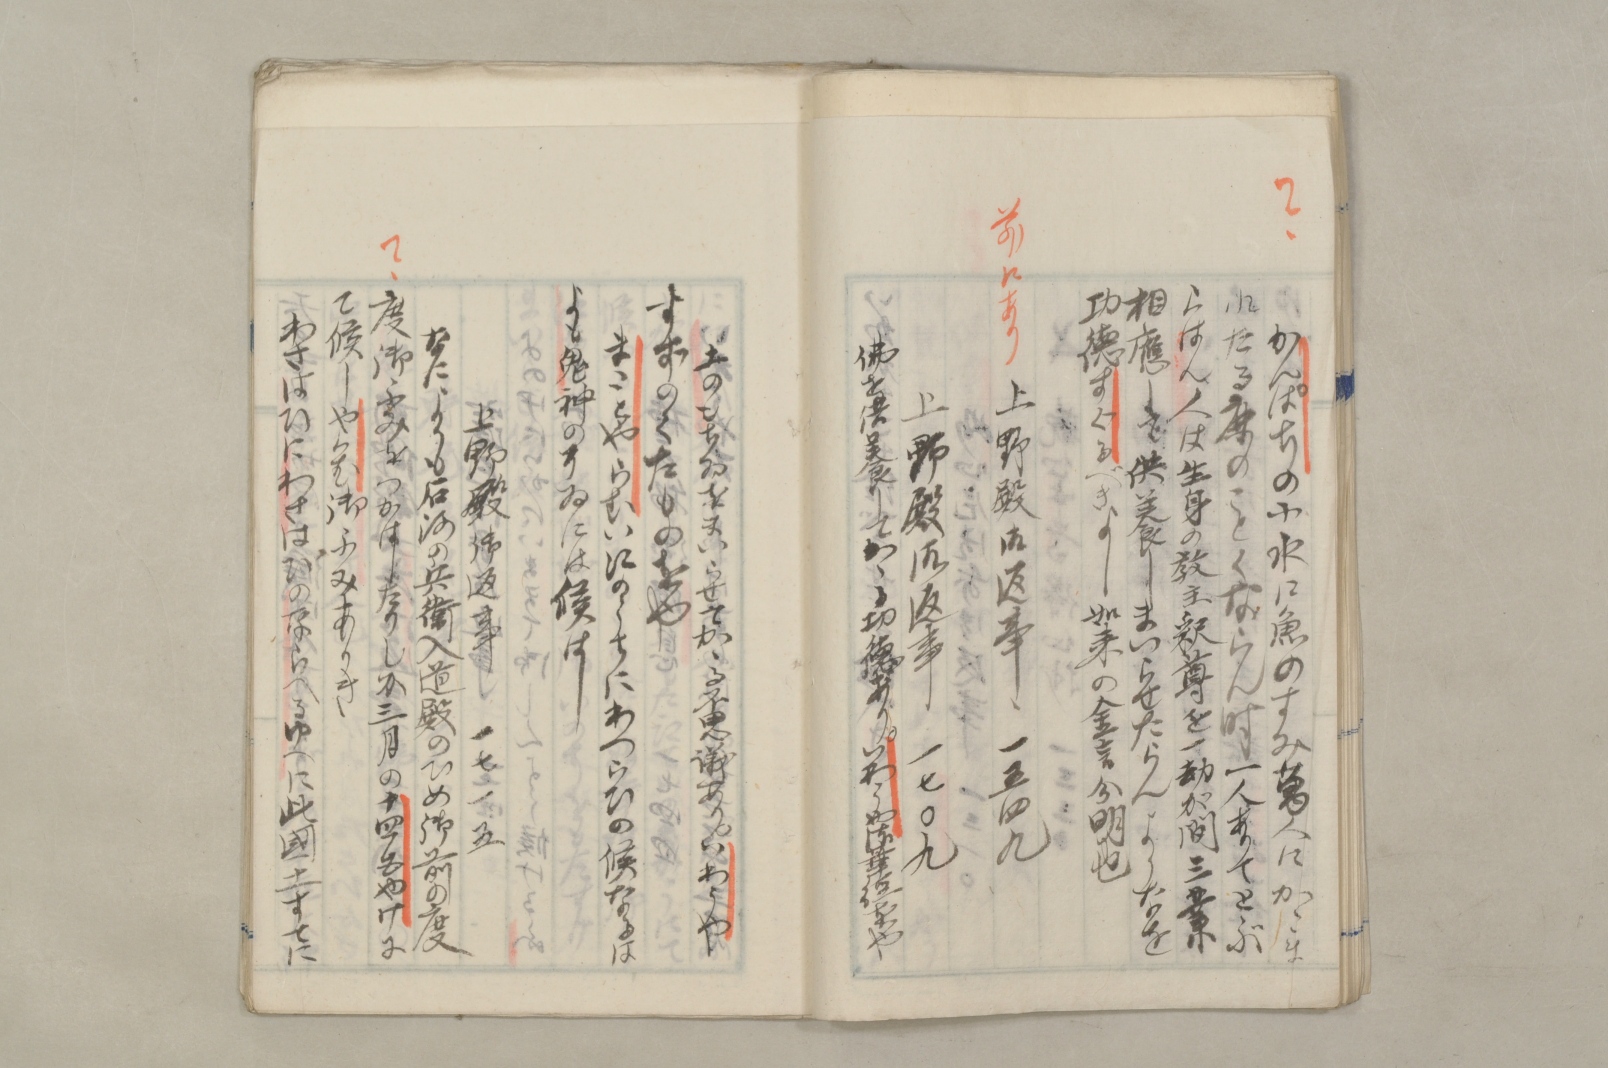 かんばちの小水に魚のすみ萬人にかゝま
れたる麻のことくならん時一人ありてとぶ
らはん人は生身の教主釈尊を一劫が間三業
相應して供養しまいらせたらんよりなを
功徳すくるべきよし如来の金言分明也
前にあり
上野殿御返事 一五四九
上野殿御返事 一七〇九
佛を供養してかゝる功徳ありいわうや法華経をや
土のもちゐをまいらせてかゝる不思議ありいわうや
すずのくたものをや
まことやらむいゑのうちにわつらひの候なるは
よも鬼神のすゐには候はし
上野殿御返事 一七一五
なによりも石河の兵衛入道殿のひめ御前の度
度御ふみをつかはしたりしか三月の十四五やけに
て候しやらむ御ふみありき
わさはひにわさはひのならへるゆへに此國土すてに